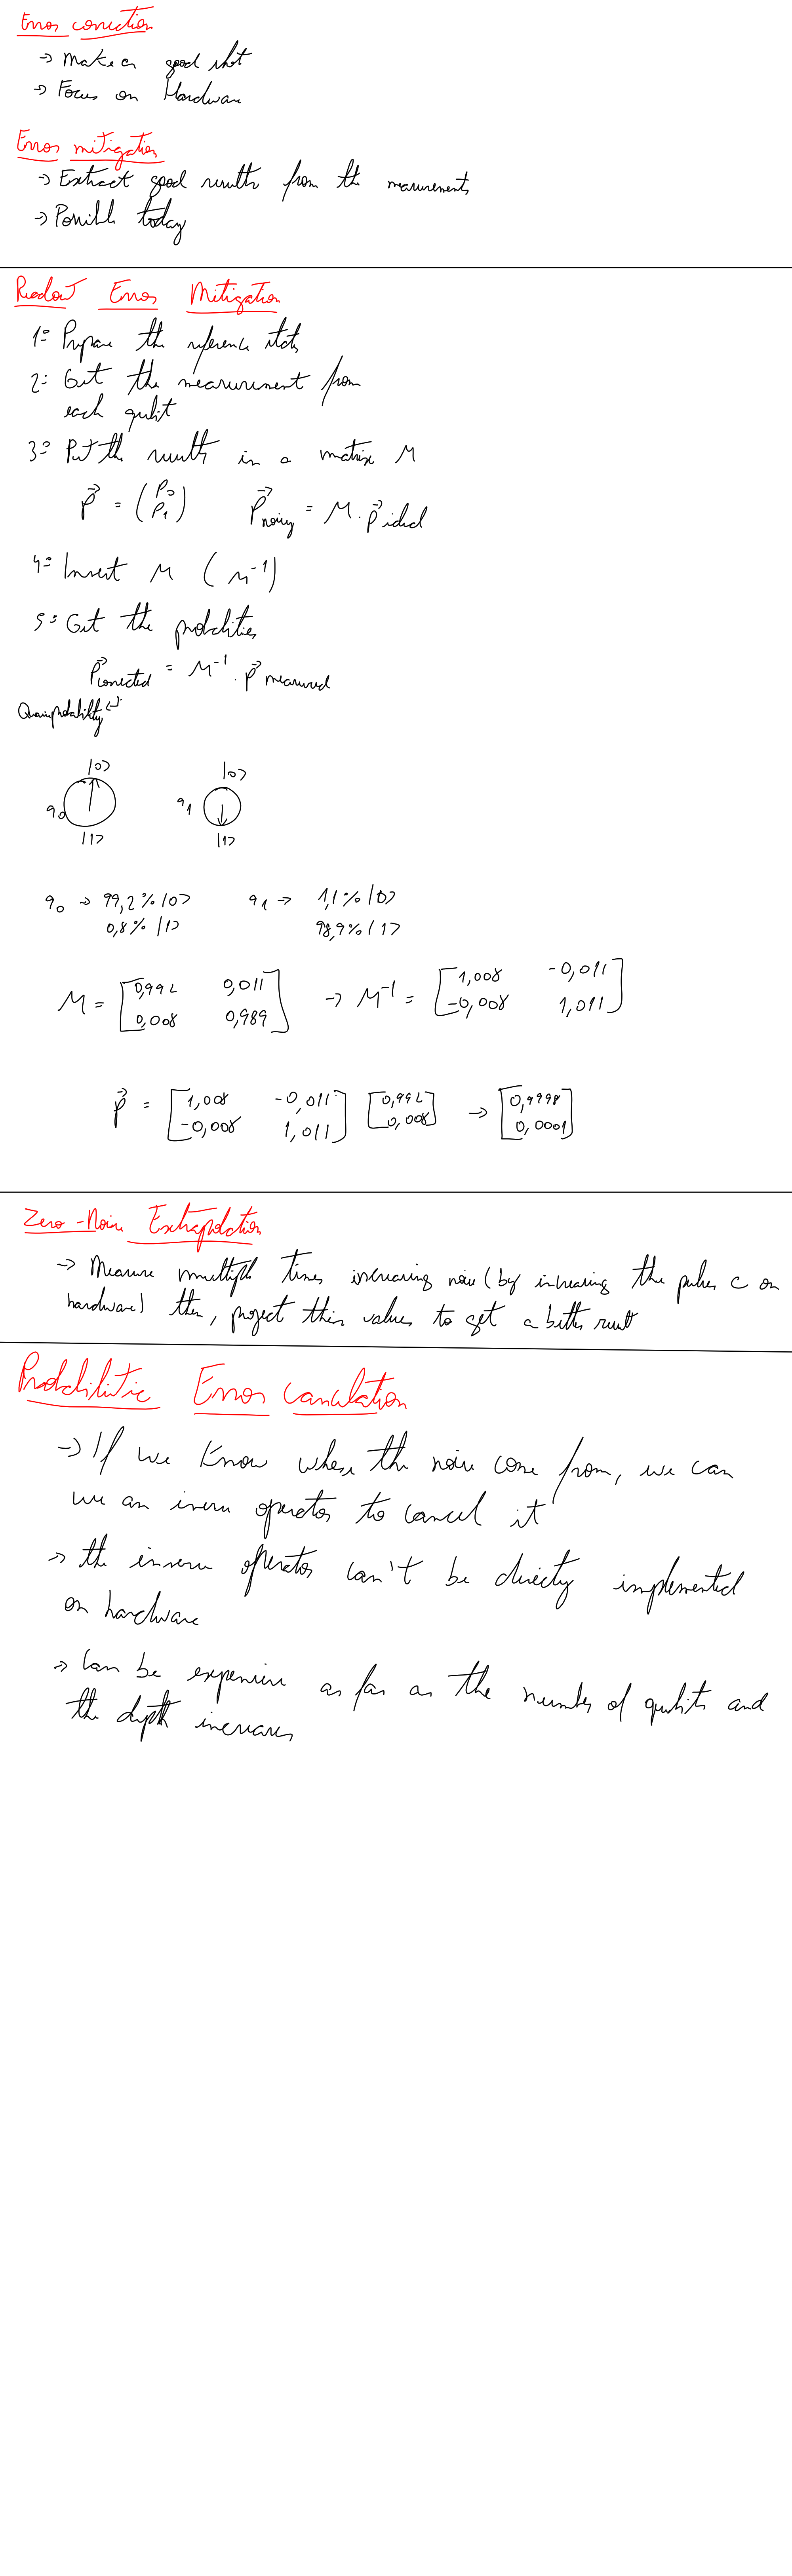 Error correction
→ Make a good shot
→ Focus on Hardware
Error mitigation
→ Extract good results from the measurements
→ Possible today
Readout Error Mitigation
1= Prepare the reference states
2= Get the measurement from
each qubit
3= Put the results in a matrix M
p⃗ = (P₀ P₁) P⃗noisy = M . p⃗ ideal
4= Invert M (M⁻¹)
5= Get the probabilities
P⃗corrected = M⁻¹ . p⃗ measured
Quasiprobability
|0> |0>
q₀ q₁
|1> |1>
q₀ → 99,2% |0> q₁ → 1,1% |0>
0,8% |1> 98,9% |1>
M = [0,992 0,011 → M⁻¹ = [1,008 -0,011
0,008 0,989] -0,008 1,011]
p⃗ = [1,008 -0,011 [0,992 → [0,9998
-0,008 1,011] 0,008] 0,0001]
Zero-Noise Extrapolation
→ Measure multiple times increasing noise (by increasing the pulses on
hardware) then, project this values to get a better result
Probabilistic Error cancelation
→ If we know where the noise come from, we can
use an inverse operator to cancel it
→ the inverse operator can't be directly implemented
on hardware
→ Can be expensive as far as the number of qubits and
the depth increases